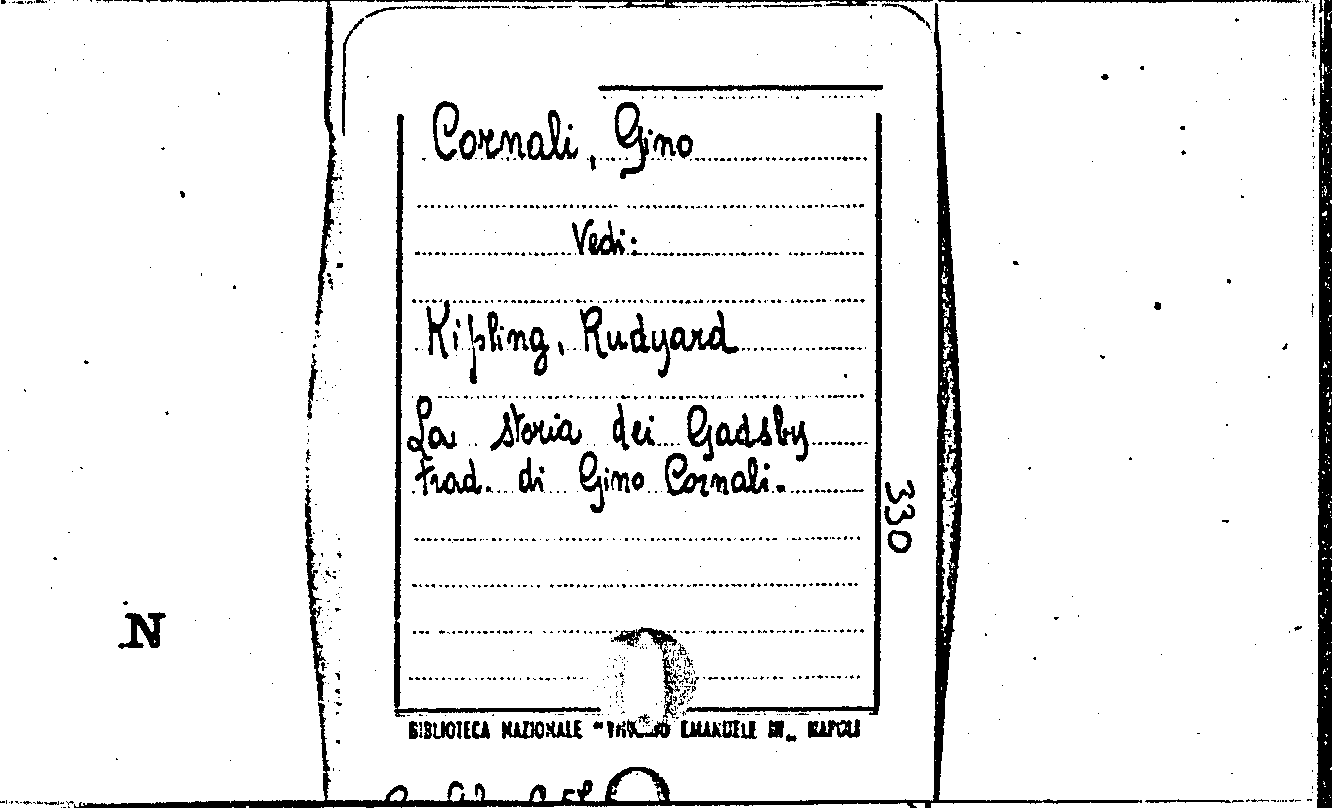 Cornali, Gino
Vedi:
Kipling, Rudyard
La storia dei Gadsby
Trad. di Gino Cornali.
330
N
BIBLIOTECA NAZIONALE "VITTORIO EMANUELE III„ NAPOLI